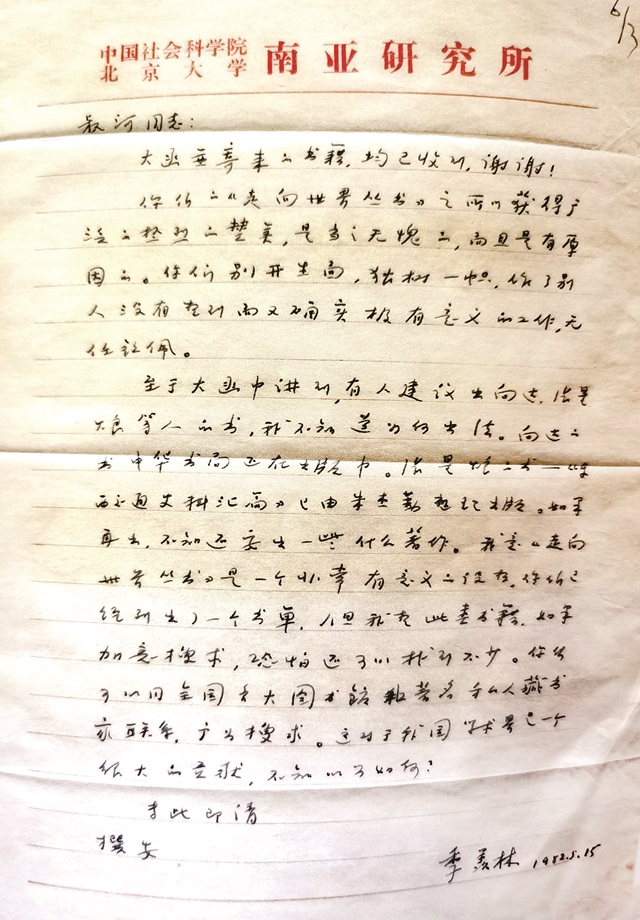 6/3
中国社会科学院
北京大学 南亚研究所
叔河同志:
大函並寄来的书籍,均已收到,谢谢!
你们的《走向世界丛书》之所以获得广
泛的热烈的赞美,是当之无愧的,而且是有原
因的。你们别开生面,独树一帜,做了别
人没有想到而又确实极有意义的工作,无
任钦佩。
至于大函中讲到,有人建议出向达、
等人的书,我不知道如何出法。向达的
书中华书局正在出版中。的书—《中
西交通史料汇篇》已由朱杰勤整理出版。如果
再出,不知还要出一些什么著作。我意《走向
世界丛书》是一个非常有意义的,你们已
经列出了一个书单,但我想此类书籍,如果
加意搜求,恐怕还可以找到不少。你们
可以同全国各大图书馆和著名私人藏书
家联系,广为搜求。这对于我国学术界是一个
很大的贡献,不知以为如何?
专此即请
撰安
季羡林 1982.5.15